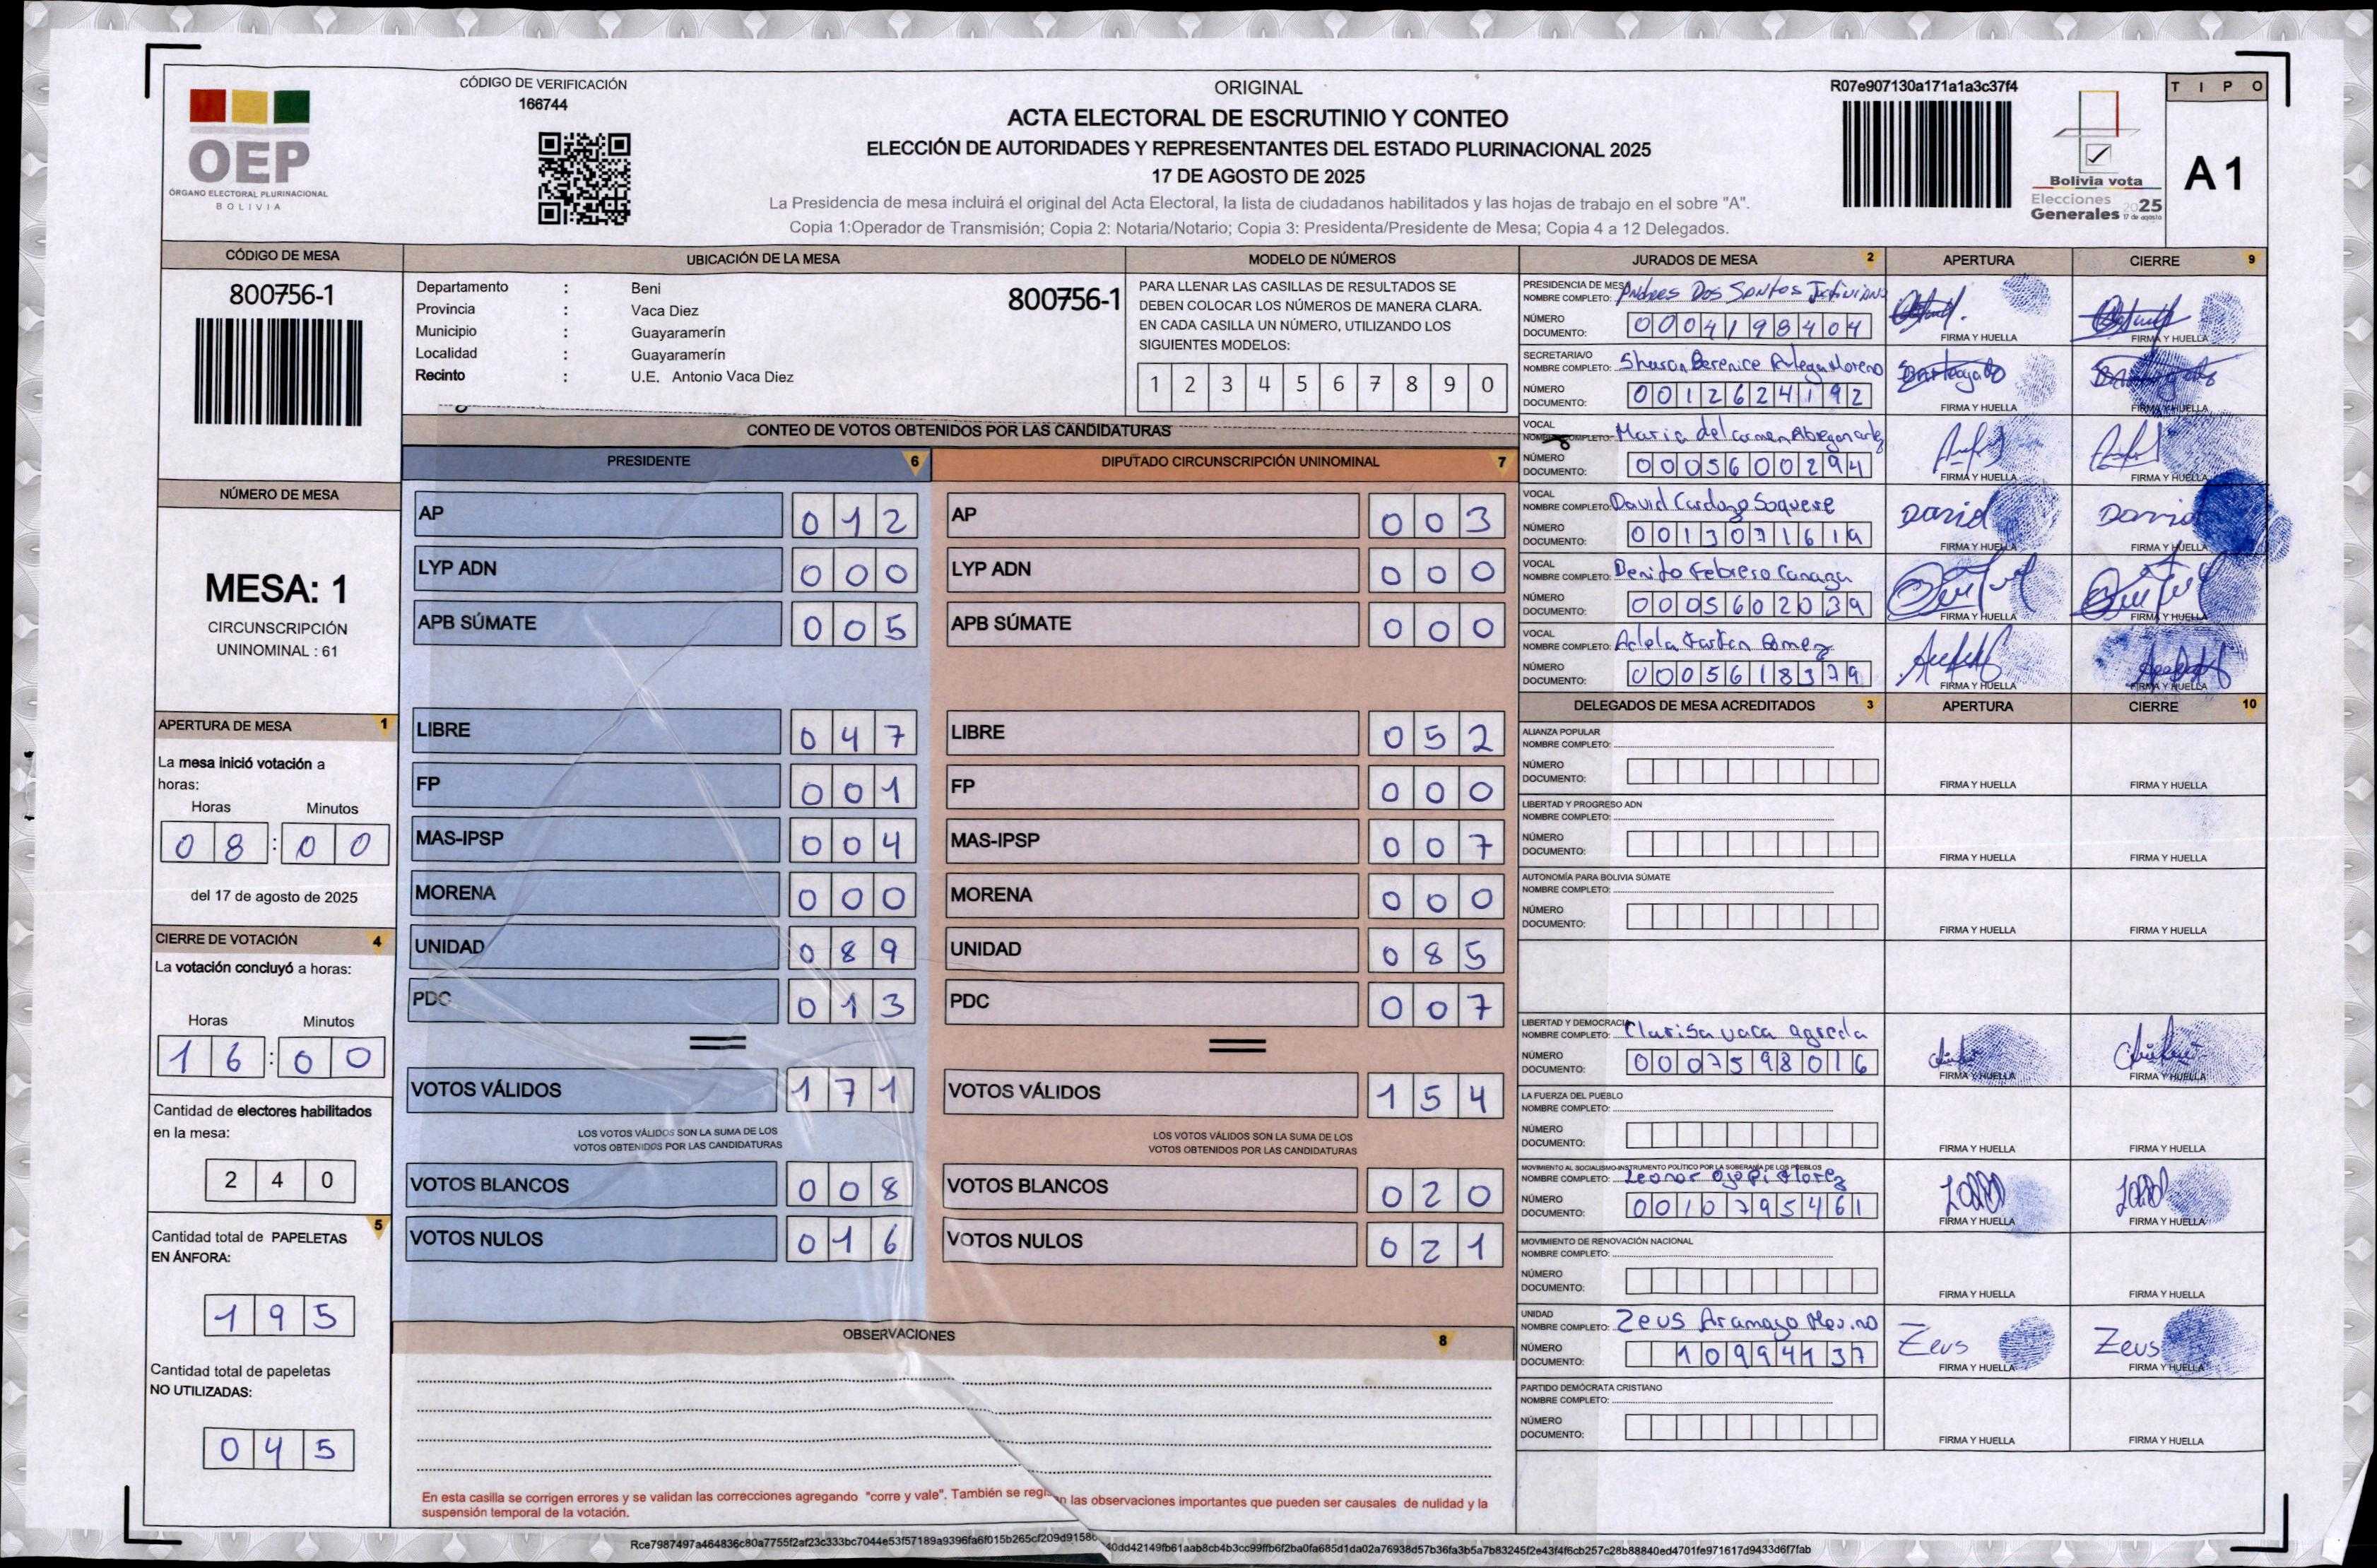 CÓDIGO DE VERIFICACIÓN
166744
OEP
ÓRGANO ELECTORAL PLURINACIONAL
BOLIVIA
ORIGINAL
ACTA ELECTORAL DE ESCRUTINIO Y CONTEO
ELECCIÓN DE AUTORIDADES Y REPRESENTANTES DEL ESTADO PLURINACIONAL 2025
17 DE AGOSTO DE 2025
La Presidencia de mesa incluirá el original del Acta Electoral, la lista de ciudadanos habilitados y las hojas de trabajo en el sobre "A".
Copia 1:Operador de Transmisión; Copia 2: Notaria/Notario; Copia 3: Presidenta/Presidente de Mesa; Copia 4 a 12 Delegados.
R07e907130a171a1a3c37f4
Bolivia vota
Elecciones
Generales 2025
17 de agosto
TIPO
A 1
CÓDIGO DE MESA
800756-1
UBICACIÓN DE LA MESA
Departamento : Beni
Provincia : Vaca Diez
Municipio : Guayaramerín
Localidad : Guayaramerín
Recinto : U.E. Antonio Vaca Diez
800756-1
MODELO DE NÚMEROS
PARA LLENAR LAS CASILLAS DE RESULTADOS SE
DEBEN COLOCAR LOS NÚMEROS DE MANERA CLARA.
EN CADA CASILLA UN NÚMERO, UTILIZANDO LOS
SIGUIENTES MODELOS:
1 2 3 4 5 6 7 8 9 0
NÚMERO DE MESA
MESA: 1
CIRCUNSCRIPCIÓN
UNINOMINAL : 61
APERTURA DE MESA 1
La mesa inició votación a
horas:
Horas Minutos
08:00
del 17 de agosto de 2025
CIERRE DE VOTACIÓN 4
La votación concluyó a horas:
Horas Minutos
16:00
Cantidad de electores habilitados
en la mesa:
240
5
Cantidad total de PAPELETAS
EN ÁNFORA:
195
Cantidad total de papeletas
NO UTILIZADAS:
045
CONTEO DE VOTOS OBTENIDOS POR LAS CANDIDATURAS
PRESIDENTE 6
AP 012
LYP ADN 000
APB SÚMATE 005
LIBRE 047
FP 001
MAS-IPSP 004
MORENA 000
UNIDAD 089
PDC 013
VOTOS VÁLIDOS 171
LOS VOTOS VÁLIDOS SON LA SUMA DE LOS
VOTOS OBTENIDOS POR LAS CANDIDATURAS
VOTOS BLANCOS 008
VOTOS NULOS 016
DIPUTADO CIRCUNSCRIPCIÓN UNINOMINAL 7
AP 003
LYP ADN 000
APB SÚMATE 000
LIBRE 052
FP 000
MAS-IPSP 007
MORENA 000
UNIDAD 085
PDC 007
VOTOS VÁLIDOS 154
LOS VOTOS VÁLIDOS SON LA SUMA DE LOS
VOTOS OBTENIDOS POR LAS CANDIDATURAS
VOTOS BLANCOS 020
VOTOS NULOS 021
OBSERVACIONES 8
En esta casilla se corrigen errores y se validan las correcciones agregando "corre y vale". También se las observaciones importantes que pueden ser causales de nulidad y la
suspensión temporal de la votación.
JURADOS DE MESA 2 APERTURA CIERRE 9
PRESIDENCIA DE MESA
NOMBRE COMPLETO: Dos Santos
NÚMERO
DOCUMENTO: 0004198404
FIRMA Y HUELLA FIRMA Y HUELLA
SECRETARIA/O
NOMBRE COMPLETO: Sharon Berenice Moreno
NÚMERO
DOCUMENTO: 0012624192
FIRMA Y HUELLA FIRMA Y HUELLA
VOCAL
NOMBRE COMPLETO: Maria del carmen
NÚMERO
DOCUMENTO: 0005600294
FIRMA Y HUELLA FIRMA Y HUELLA
VOCAL
NOMBRE COMPLETO: David Cardozo
NÚMERO
DOCUMENTO: 0013071619
David David
FIRMA Y HUELLA FIRMA Y HUELLA
VOCAL
NOMBRE COMPLETO: Benito Febrero Canaza
NÚMERO
DOCUMENTO: 0005602039
FIRMA Y HUELLA FIRMA Y HUELLA
VOCAL
NOMBRE COMPLETO: Adela
NÚMERO
DOCUMENTO: 0005618379
FIRMA Y HUELLA FIRMA Y HUELLA
DELEGADOS DE MESA ACREDITADOS 3 APERTURA CIERRE 10
ALIANZA POPULAR
NOMBRE COMPLETO:
NÚMERO
DOCUMENTO:
FIRMA Y HUELLA FIRMA Y HUELLA
LIBERTAD Y PROGRESO ADN
NOMBRE COMPLETO:
NÚMERO
DOCUMENTO:
FIRMA Y HUELLA FIRMA Y HUELLA
AUTONOMÍA PARA BOLIVIA SÚMATE
NOMBRE COMPLETO:
NÚMERO
DOCUMENTO:
FIRMA Y HUELLA FIRMA Y HUELLA
LIBERTAD Y DEMOCRACIA
NOMBRE COMPLETO: Clarisa vaca agreda
NÚMERO
DOCUMENTO: 0007598016
FIRMA Y HUELLA FIRMA Y HUELLA
LA FUERZA DEL PUEBLO
NOMBRE COMPLETO:
NÚMERO
DOCUMENTO:
FIRMA Y HUELLA FIRMA Y HUELLA
MOVIMIENTO AL SOCIALISMO-INSTRUMENTO POLÍTICO POR LA SOBERANÍA DE LOS PUEBLOS
NOMBRE COMPLETO: Leonor Ojopi Florez
NÚMERO
DOCUMENTO: 0010795461
FIRMA Y HUELLA FIRMA Y HUELLA
MOVIMIENTO DE RENOVACIÓN NACIONAL
NOMBRE COMPLETO:
NÚMERO
DOCUMENTO:
FIRMA Y HUELLA FIRMA Y HUELLA
UNIDAD
NOMBRE COMPLETO: Zeus Aramayo
NÚMERO
DOCUMENTO: 10994137
Zeus Zeus
FIRMA Y HUELLA FIRMA Y HUELLA
PARTIDO DEMÓCRATA CRISTIANO
NOMBRE COMPLETO:
NÚMERO
DOCUMENTO:
FIRMA Y HUELLA FIRMA Y HUELLA